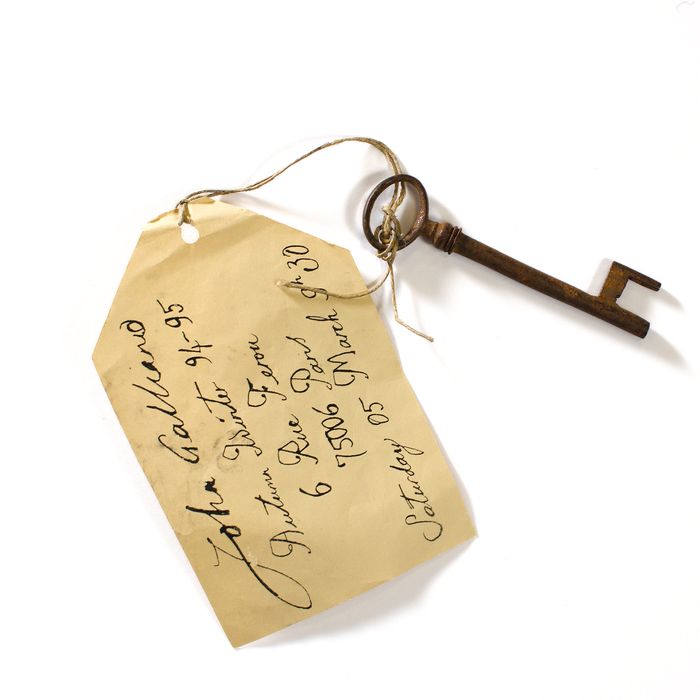 John Galliano
Autumn Winter 94-95
6 Rue Ferou
75006 Paris
Saturday 05 March 9h30